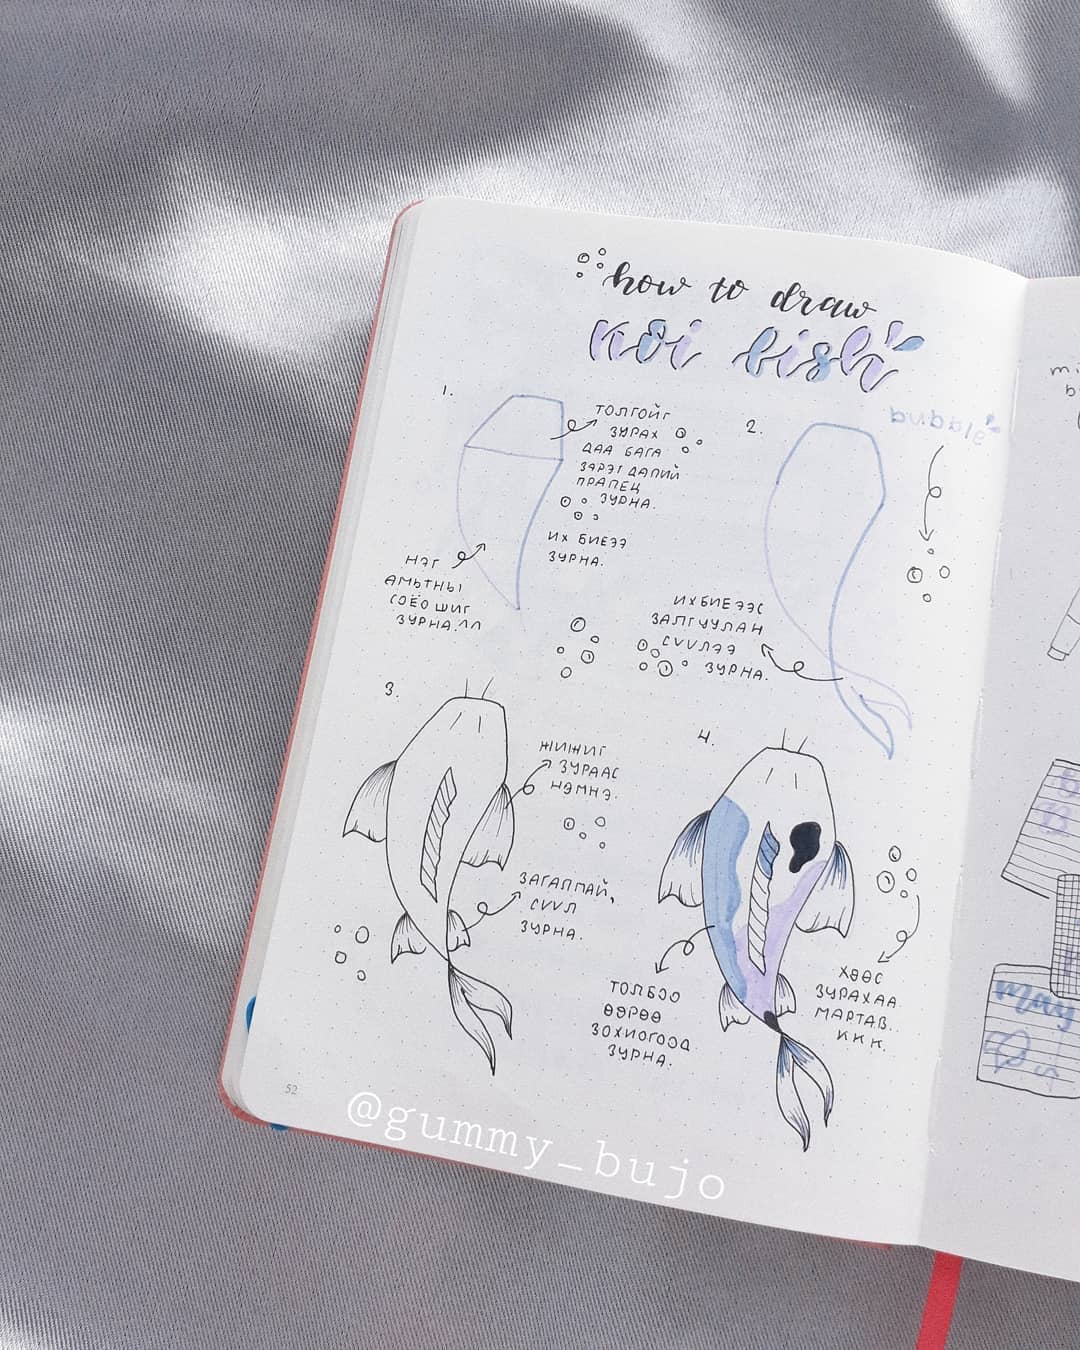 how to draw
koi bish
1.
ТОЛГОЙГ
ЗУРАХ
ДАА БАГА
ЗЭРЭГ ДАЛИЙ
ПРАПЕЦ
ЗУРНА.
ИХ БИЕЭЭ
ЗУРНА.
НЭГ
АМЬТНЫ
СОЁО ШИГ
ЗУРНА.ЛЛ
2.
bubble
ИХ БИЕЭЭС
ЗАЛГУУЛАН
СҮҮЛЭЭ
ЗУРНА.
3.
ЖИЖИГ
ЗУРААС
НЭМНЭ.
ЗАГАЛМАЙ,
СҮҮЛ
ЗУРНА.
4.
ТОЛБОО
ӨӨРӨӨ
ЗОХИОГООД
ЗУРНА.
ХӨӨС
ЗУРАХАА
МАРТАВ..
ККК.
52
@gummy_bujo
may